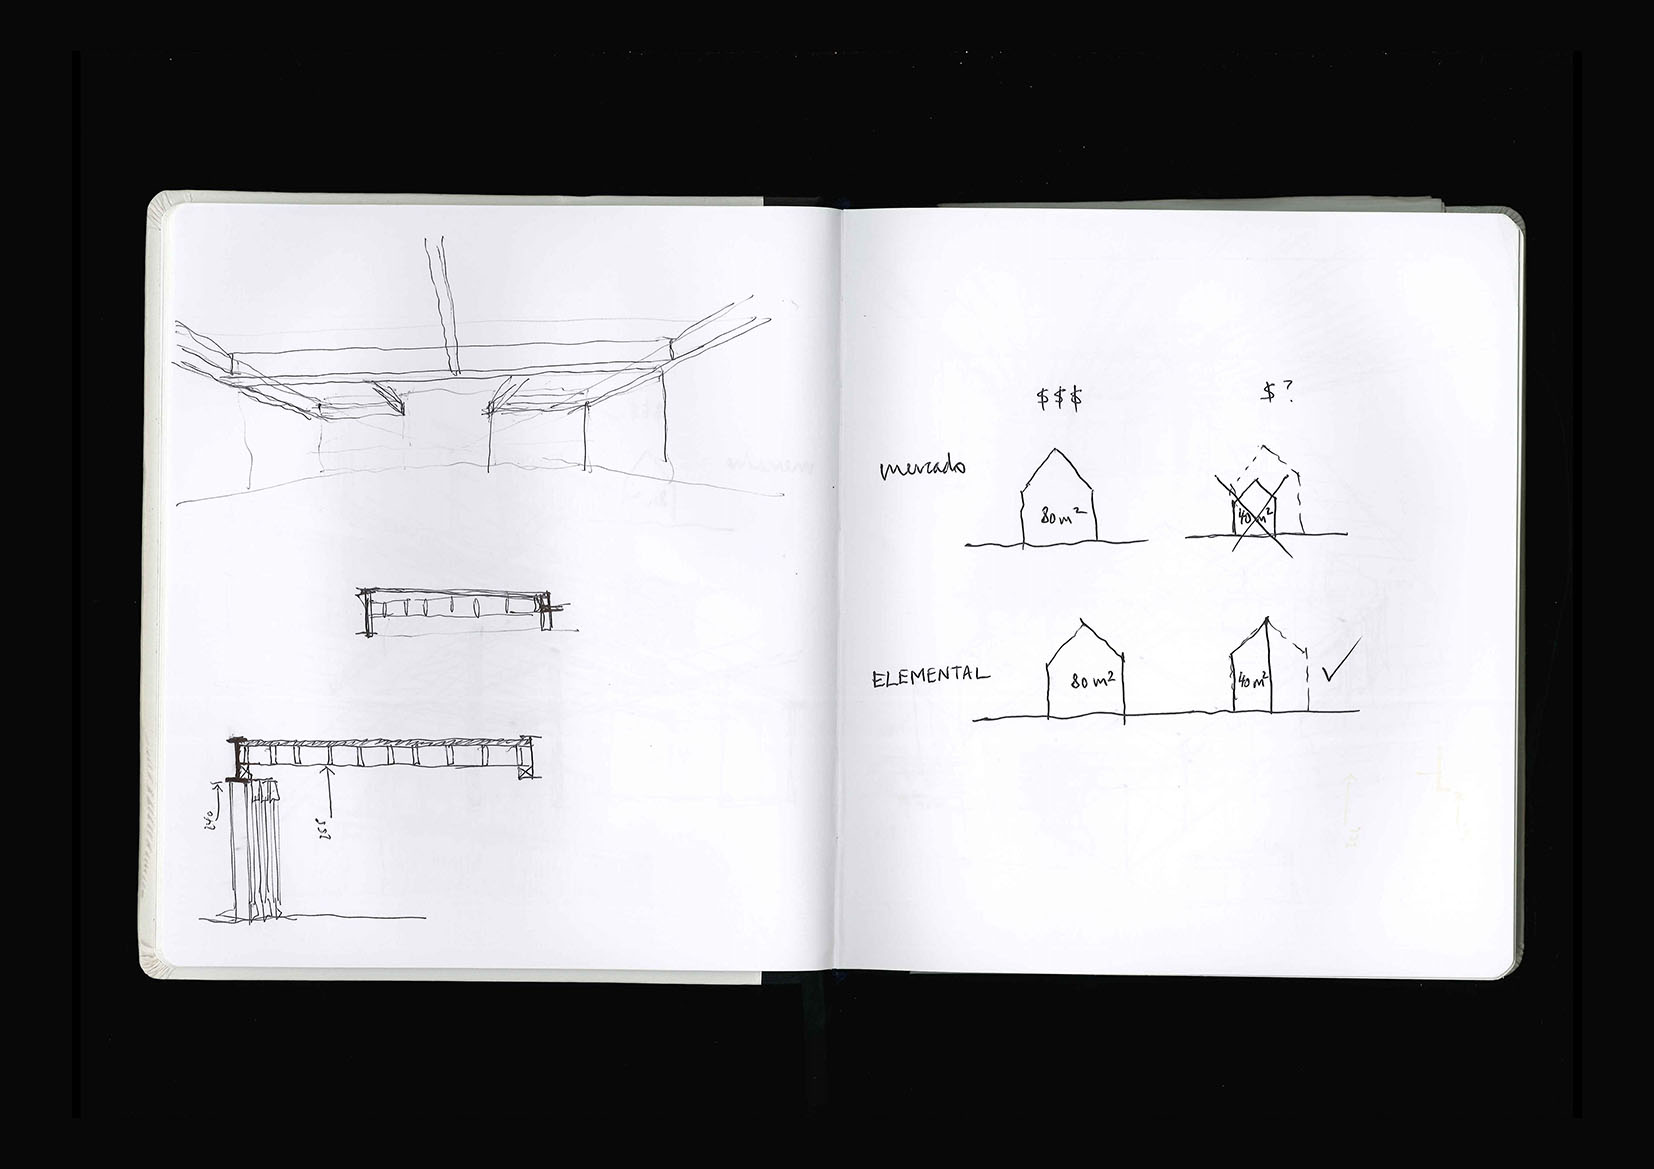 240
255
$$$
$?
mercado
80m²
40m²
ELEMENTAL
80m²
40m²